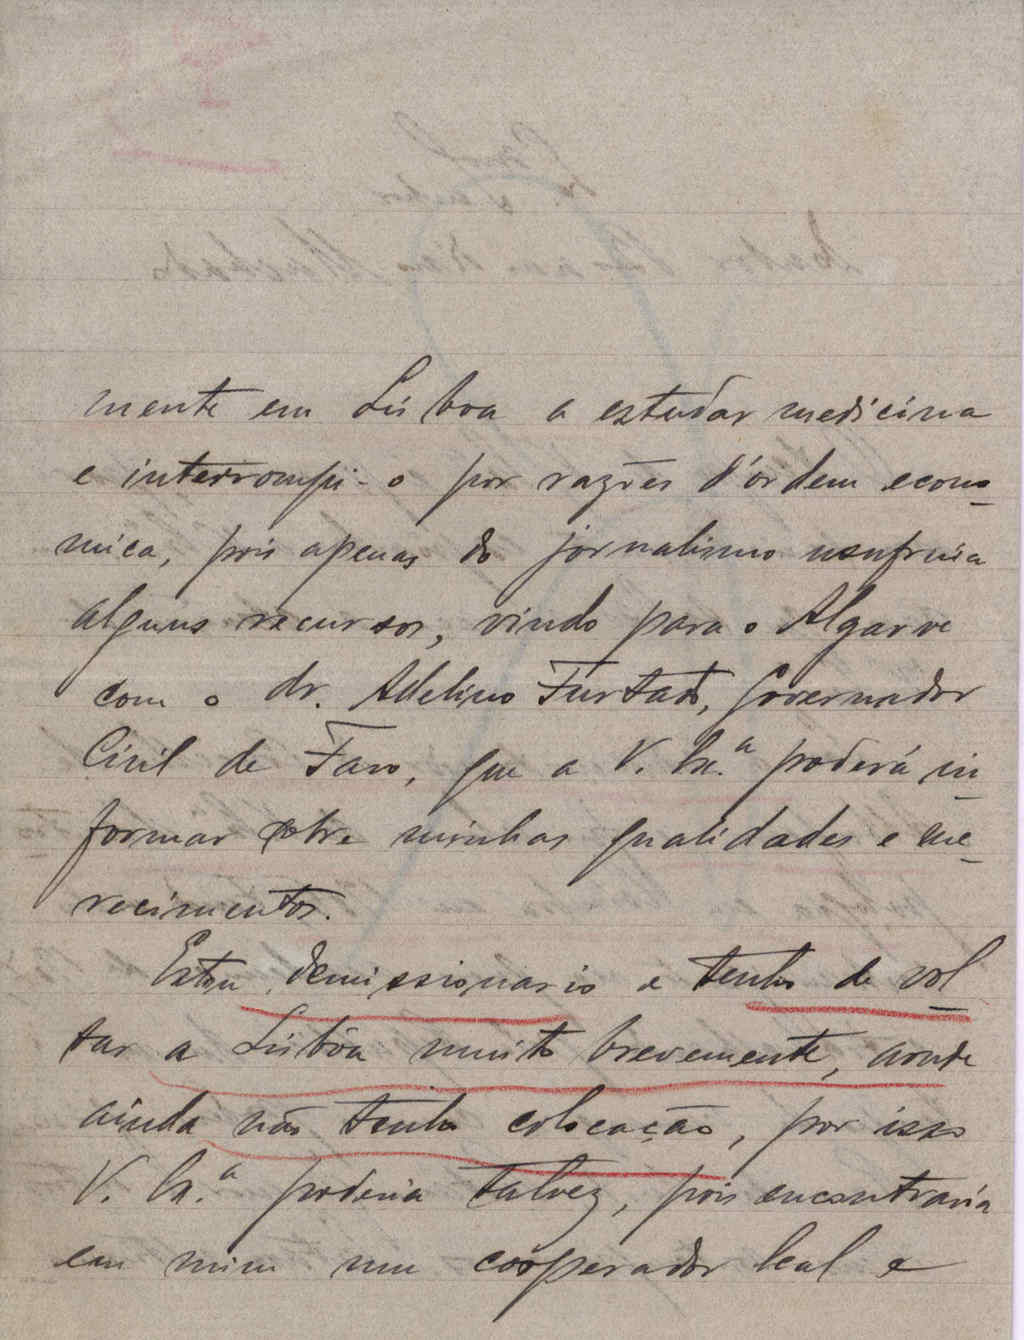 mente em Lisboa a estudar medicina
e interrompi-o por razões d'órdem econo-
mica, pois apenas do jornalismo usufruia
alguns recursos, vindo para o Algarve
com o dr. Adelino Furtado, Governador
Civil de Faro, que a V. Ex.ª poderá in-
formar sobre minhas qualidades e me-
recimentos.
Estou demissionario e tenho de vol-
tar a Lisbôa muito brevemente, aonde
ainda não tenho colocação, por isso
V. Ex.ª poderia talvez, pois encontraria
em mim um coóperador leal e